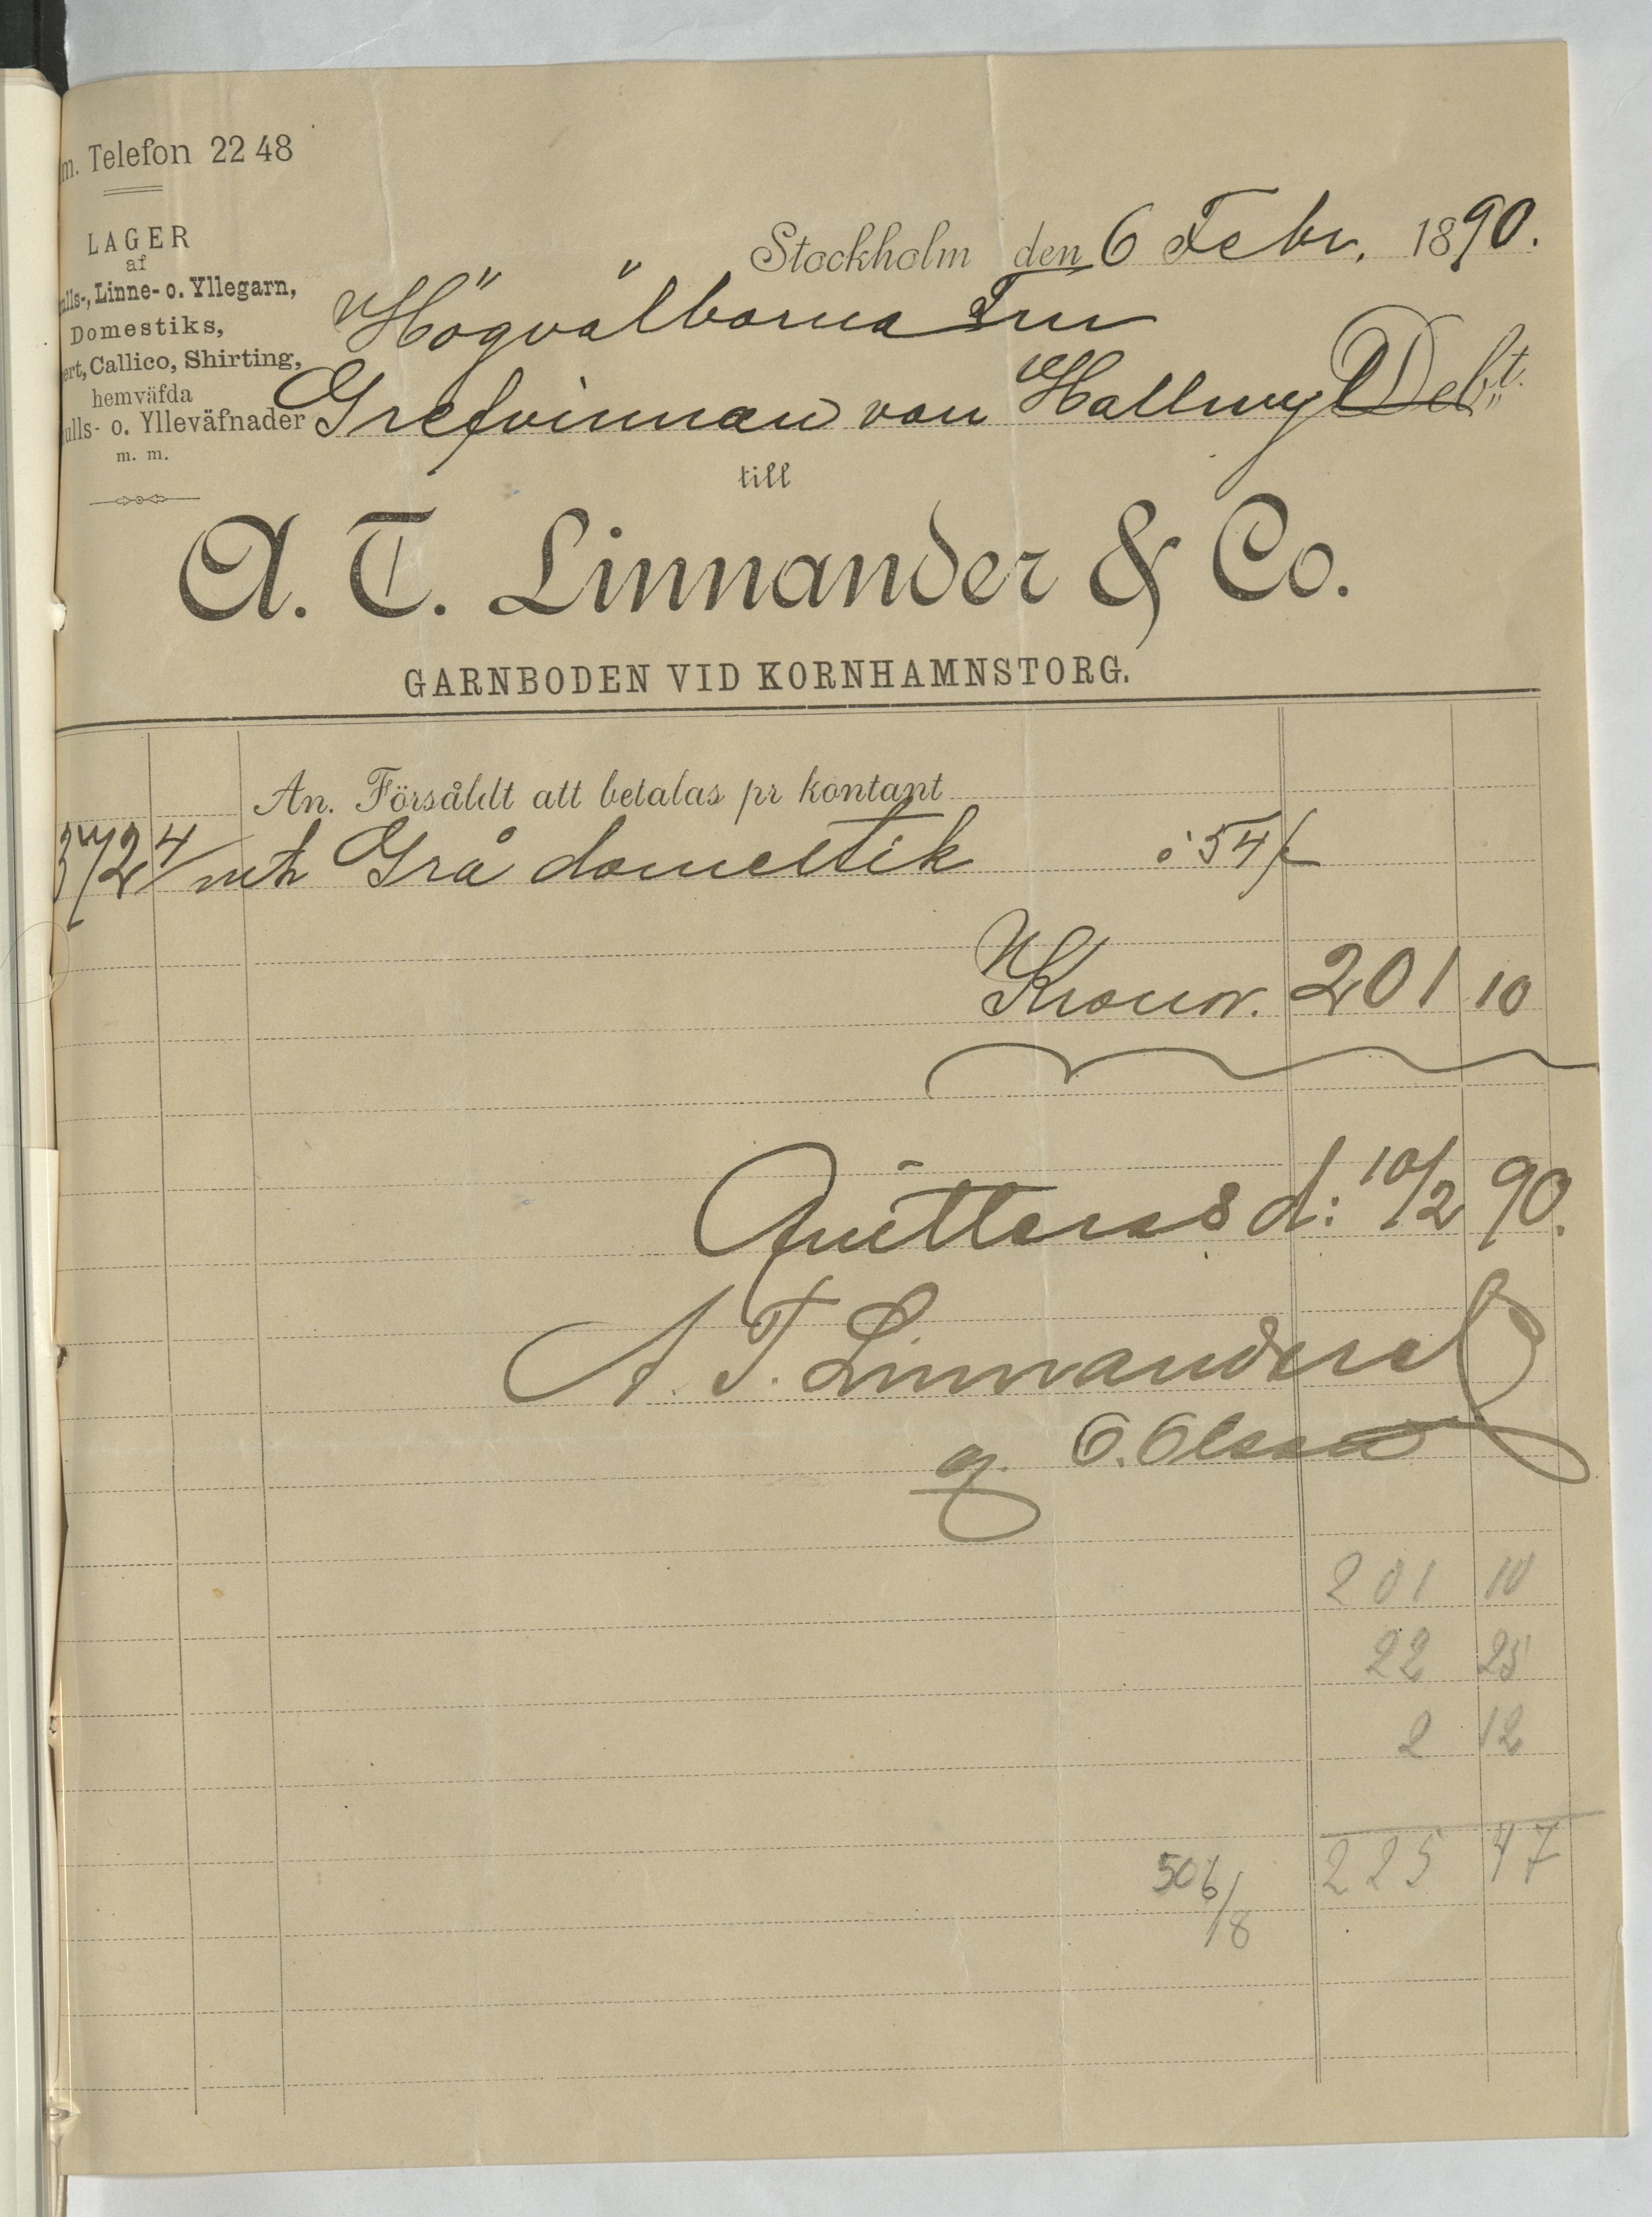 m. Telefon 22 48
LAGER
af
ulls-, Linne- o. Yllegarn,
Domestiks,
ert, Callico, Shirting,
hemväfda
ulls- o. Ylleväfnader
m. m.
Stockholm den 6 Febr. 1890.
Högvälborna Fru
Grefvinnan von Hallwyl Debt.
till
A. T. Linnander & Co.
GARNBODEN VID KORNHAMNSTORG.
An. Försåldt att betalas pr kontant
372 4/ mtr Grå domestik à 54/
Kronor. 201 10
Quitteras d: 10/2 90.
A. T. Linnander
g. O. Olsson
201 10
22 25
2 12
225 47
506/8